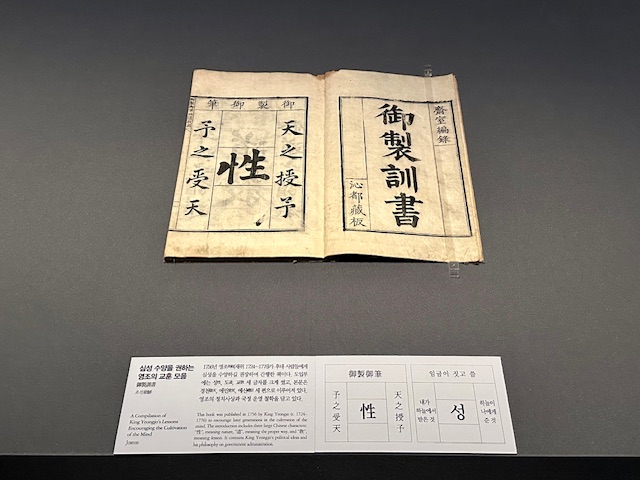 齋室編錄
御製訓書
沁都藏板
御製御筆
天之授予
性
予之受天
심성 수양을 권하는
영조의 교훈 모음
御製訓書
A Compilation of
King Yeongjo's Lessons
Encouraging the Cultivation
of the Mind
Joseon
1756년 영조(재위 1724~1776)가 후대 사람들에게
심성을 수양하길 권장하며 간행한 책이다. 도입부
에는 성性, 도道, 교敎 세 글자를 크게 썼고, 본문은
세 편으로 이루어져 있다.
영조의 정치사상과 국정 운영 철학을 담고 있다.
This book was published in 1756 by King Yeongjo (r. 1724–
1776) to encourage later generations in the cultivation of the
mind. The introduction includes three large Chinese characters:
"性", meaning nature, "道", meaning the proper way, and "敎",
meaning lesson. It contains King Yeongjo's political ideas and
his philosophy on government administration.
御製御筆
天之授予
性
予之受天
임금이 짓고 씀
하늘이
나에게
준 것
성
내가
하늘에서
받은 것